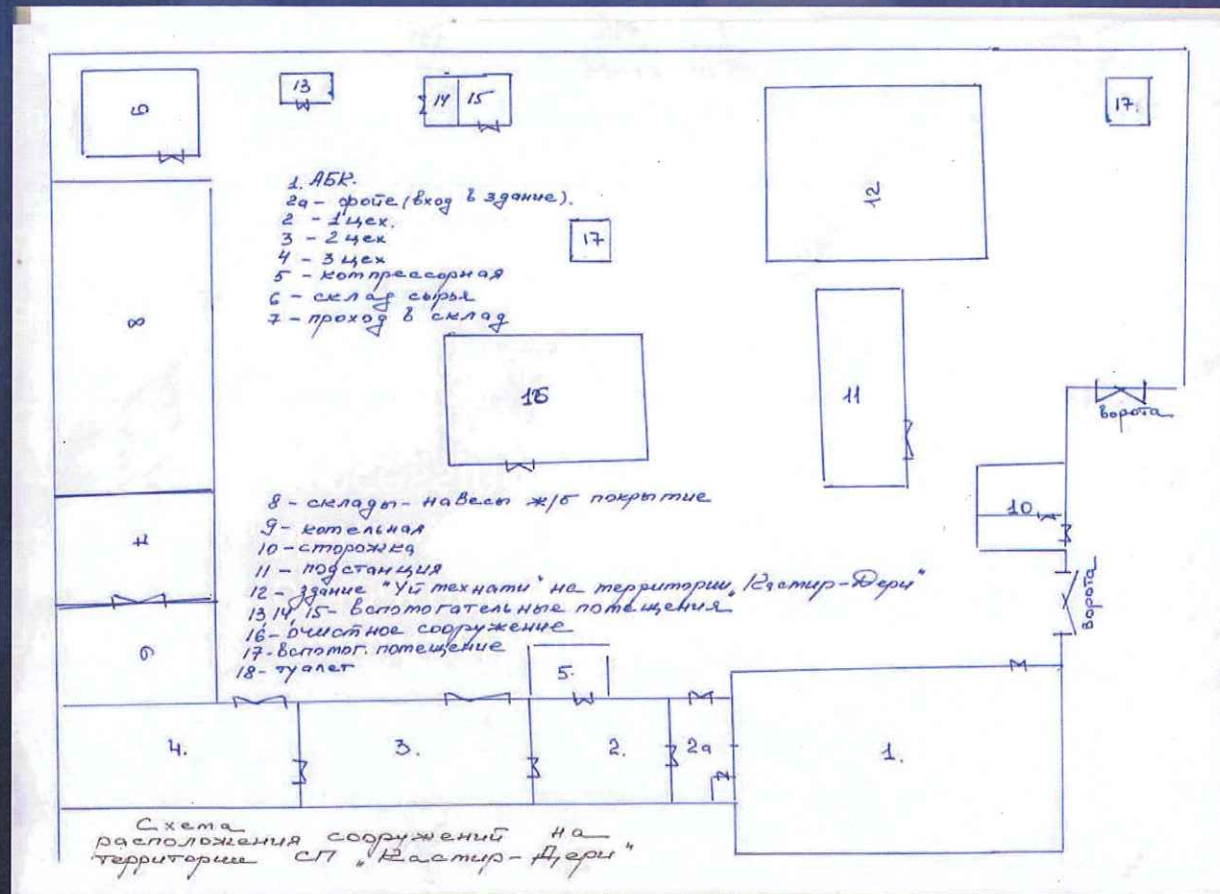 9
13
14 15
12
17.
1. АБК.
2а - фойе (вход в здание).
2 - 1 цех.
3 - 2 цех
4 - 3 цех
5 - компрессорная
6 - склад сырья
7 - проход в склад
17
8
16
11
ворота
8 - склады - навесы ж/б покрытие
9 - котельная
10 - сторожка
11 - подстанция
12 - здание "Уй техпати" на территории „Кастир-Дери"
13, 14, 15 - вспомогательные помещения
16 - очистное сооружение
17 - вспомог. помещение
18 - туалет
10
7
ворота
6
5.
4.
3.
2.
2а
1.
Схема
расположения сооружений на
территории СП „Кастир-Дери"